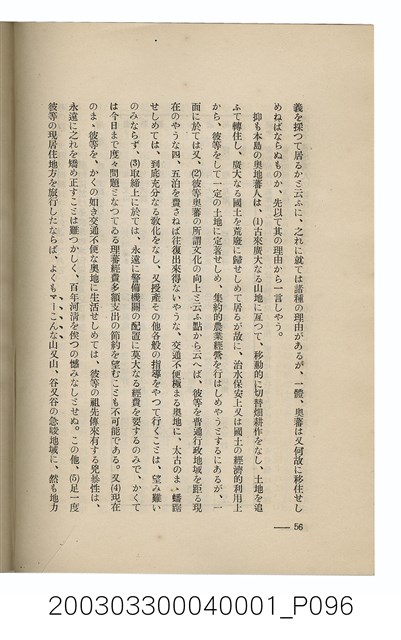 義を採つて居るかと云ふに、之れに就ては諸種の理由があるが、一體、奧蕃は又何故に移住せし
めねばならぬものか、先以て其の理由から一言しやう。
抑も本島の奧地蕃人は、(1)古來廣大なる山地に亙つて、移動的に切替畑耕作をなし、土地を追
ふて轉住し、廣大なる國土を荒廢に歸せしめて居るが故に、治水保安上又は國土の經濟的利用上
から、彼等をして一定の土地に定著せしめ、集約的農業經營を行はしめやうとするにあるが、一
面に於ては又、(2)彼等奧蕃の所謂文化の向上と云ふ點から云へば、彼等を普通行政地域を距る現
在のやうな四、五泊を費さねば往復出來得ないやうな、交通不便極まる奧地に、太古のまゝ蟠踞
せしめては、到底充分なる敎化をなし、又授產その他各般の指導をやつて行くことは、望み難い
のみならず、(3)取締上に於ては、永遠に警備機關の配置に莫大なる經費を要するのみで、かくて
は今日まで度々問題となつてゐる理蕃經費多額支出の節約を望むことも不可能である。又(4)現在
のまゝ彼等を、かくの如き交通不便な奧地に生活せしめては、彼等の祖先傳來有する兇暴性は、
永遠に之れを矯め正すことは難つかしく、百年河淸を俟つの憾みなしとせぬ。この他、(5)足一度
彼等の現居住地方を旅行したならば、よくもマーこんな山又山、谷又谷の急峻地域に、然も地力
56
200303300040001_P096